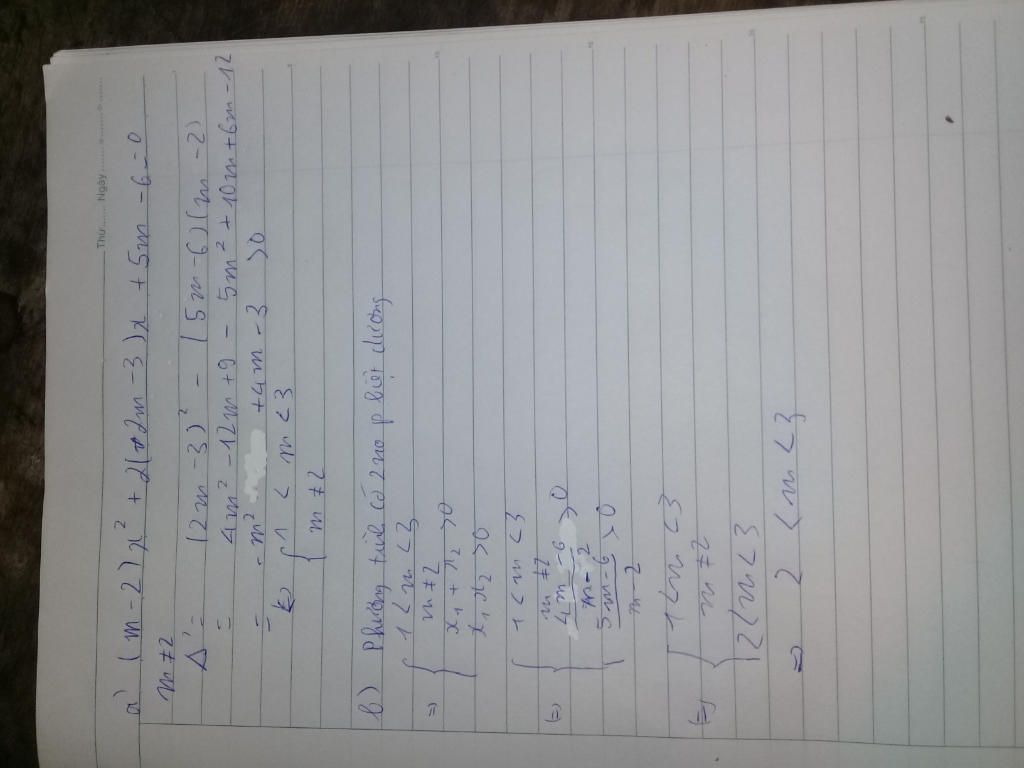 Thứ...... Ngày............
a) (m - 2)x² + 2(2m - 3)x + 5m - 6 = 0
m ≠ 2
Δ' = (2m - 3)² - (5m - 6)(m - 2)
= 4m² - 12m + 9 - 5m² + 10m + 6m - 12
= -m² + 4m - 3 > 0
(=) { 1 < m < 3
m ≠ 2
b) Phương trình có 2 no p biệt dương
=) { 1 < m < 3
m ≠ 2
x₁ + x₂ > 0
x₁ x₂ > 0
(=) { 1 < m < 3
m ≠ 2
4m - 6 / m - 2 > 0
5m - 6 / m - 2 > 0
(=) { 1 < m < 3
m ≠ 2
2 < m < 3
=) 2 < m < 3